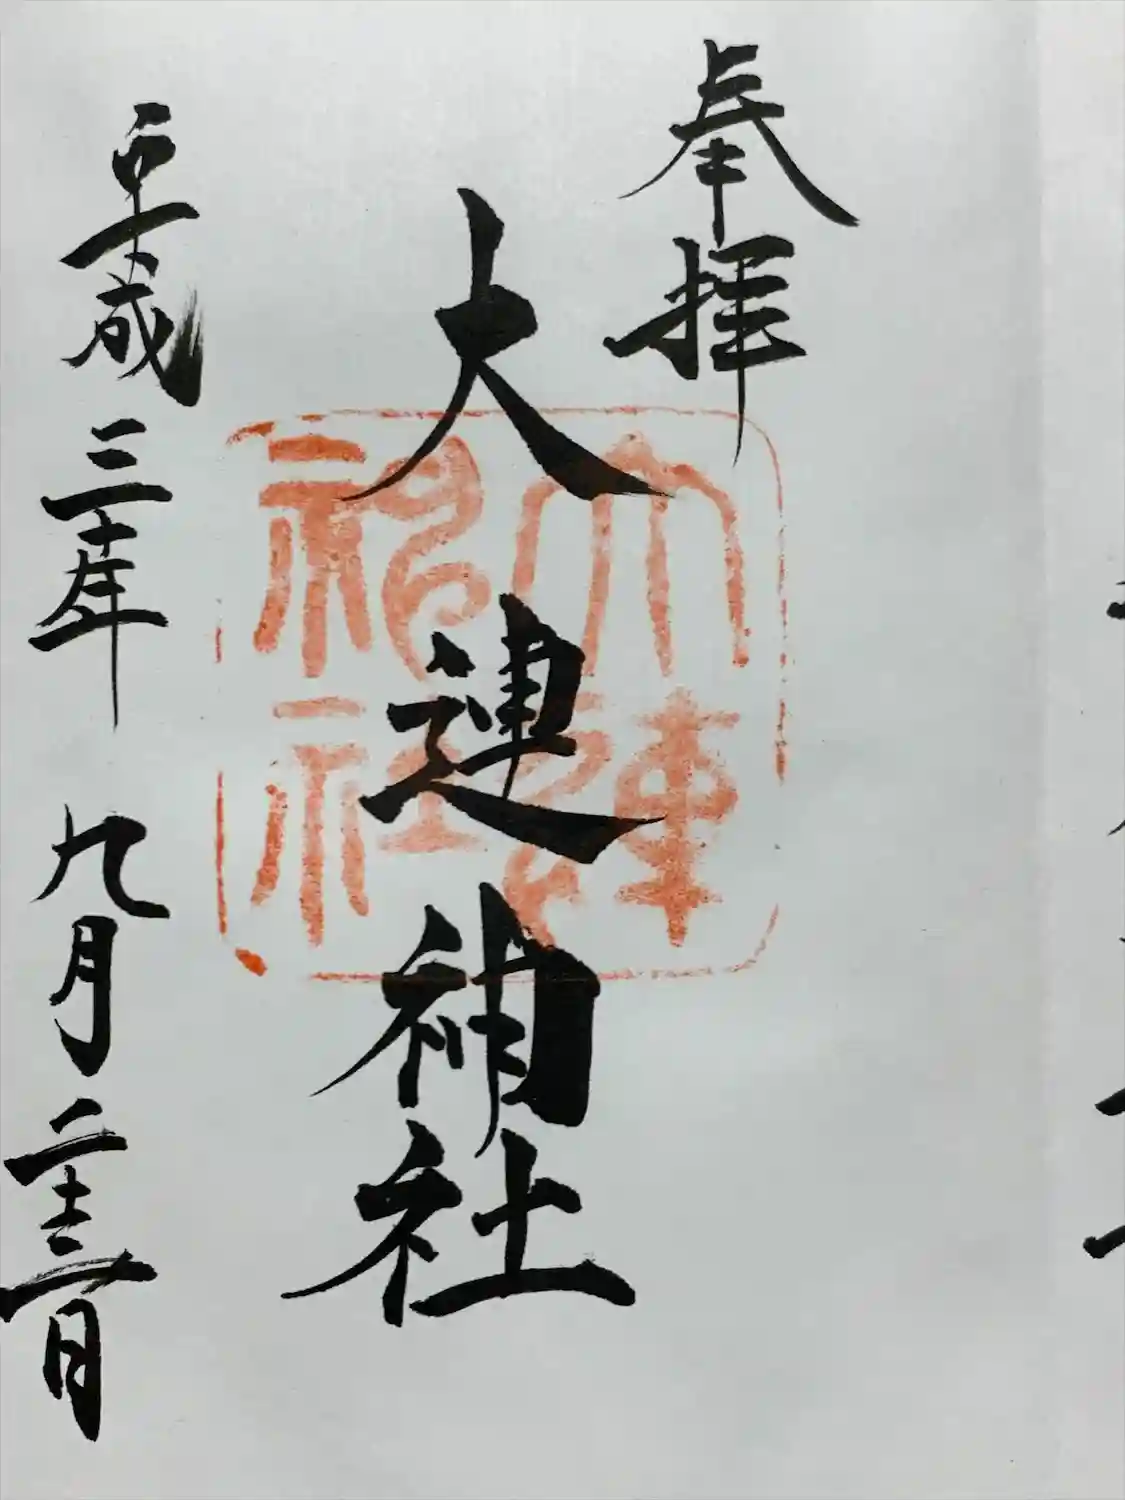 奉拝
大連神社
大連神社
平成三十年 九月二十三日